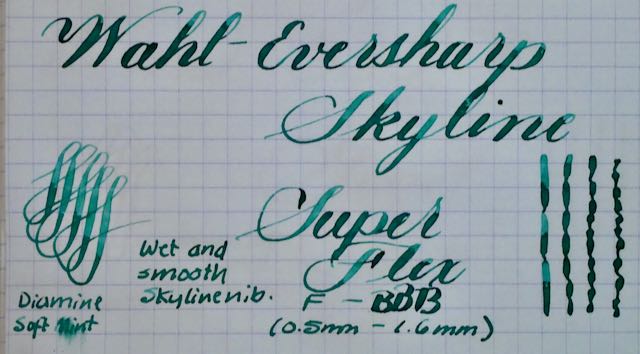 Wahl-Eversharp
Skyline
Super
Flex
F - BBB
(0.5mm - 1.6mm)
Wet and
smooth
Skyline nib.
Diamine
Soft Mint